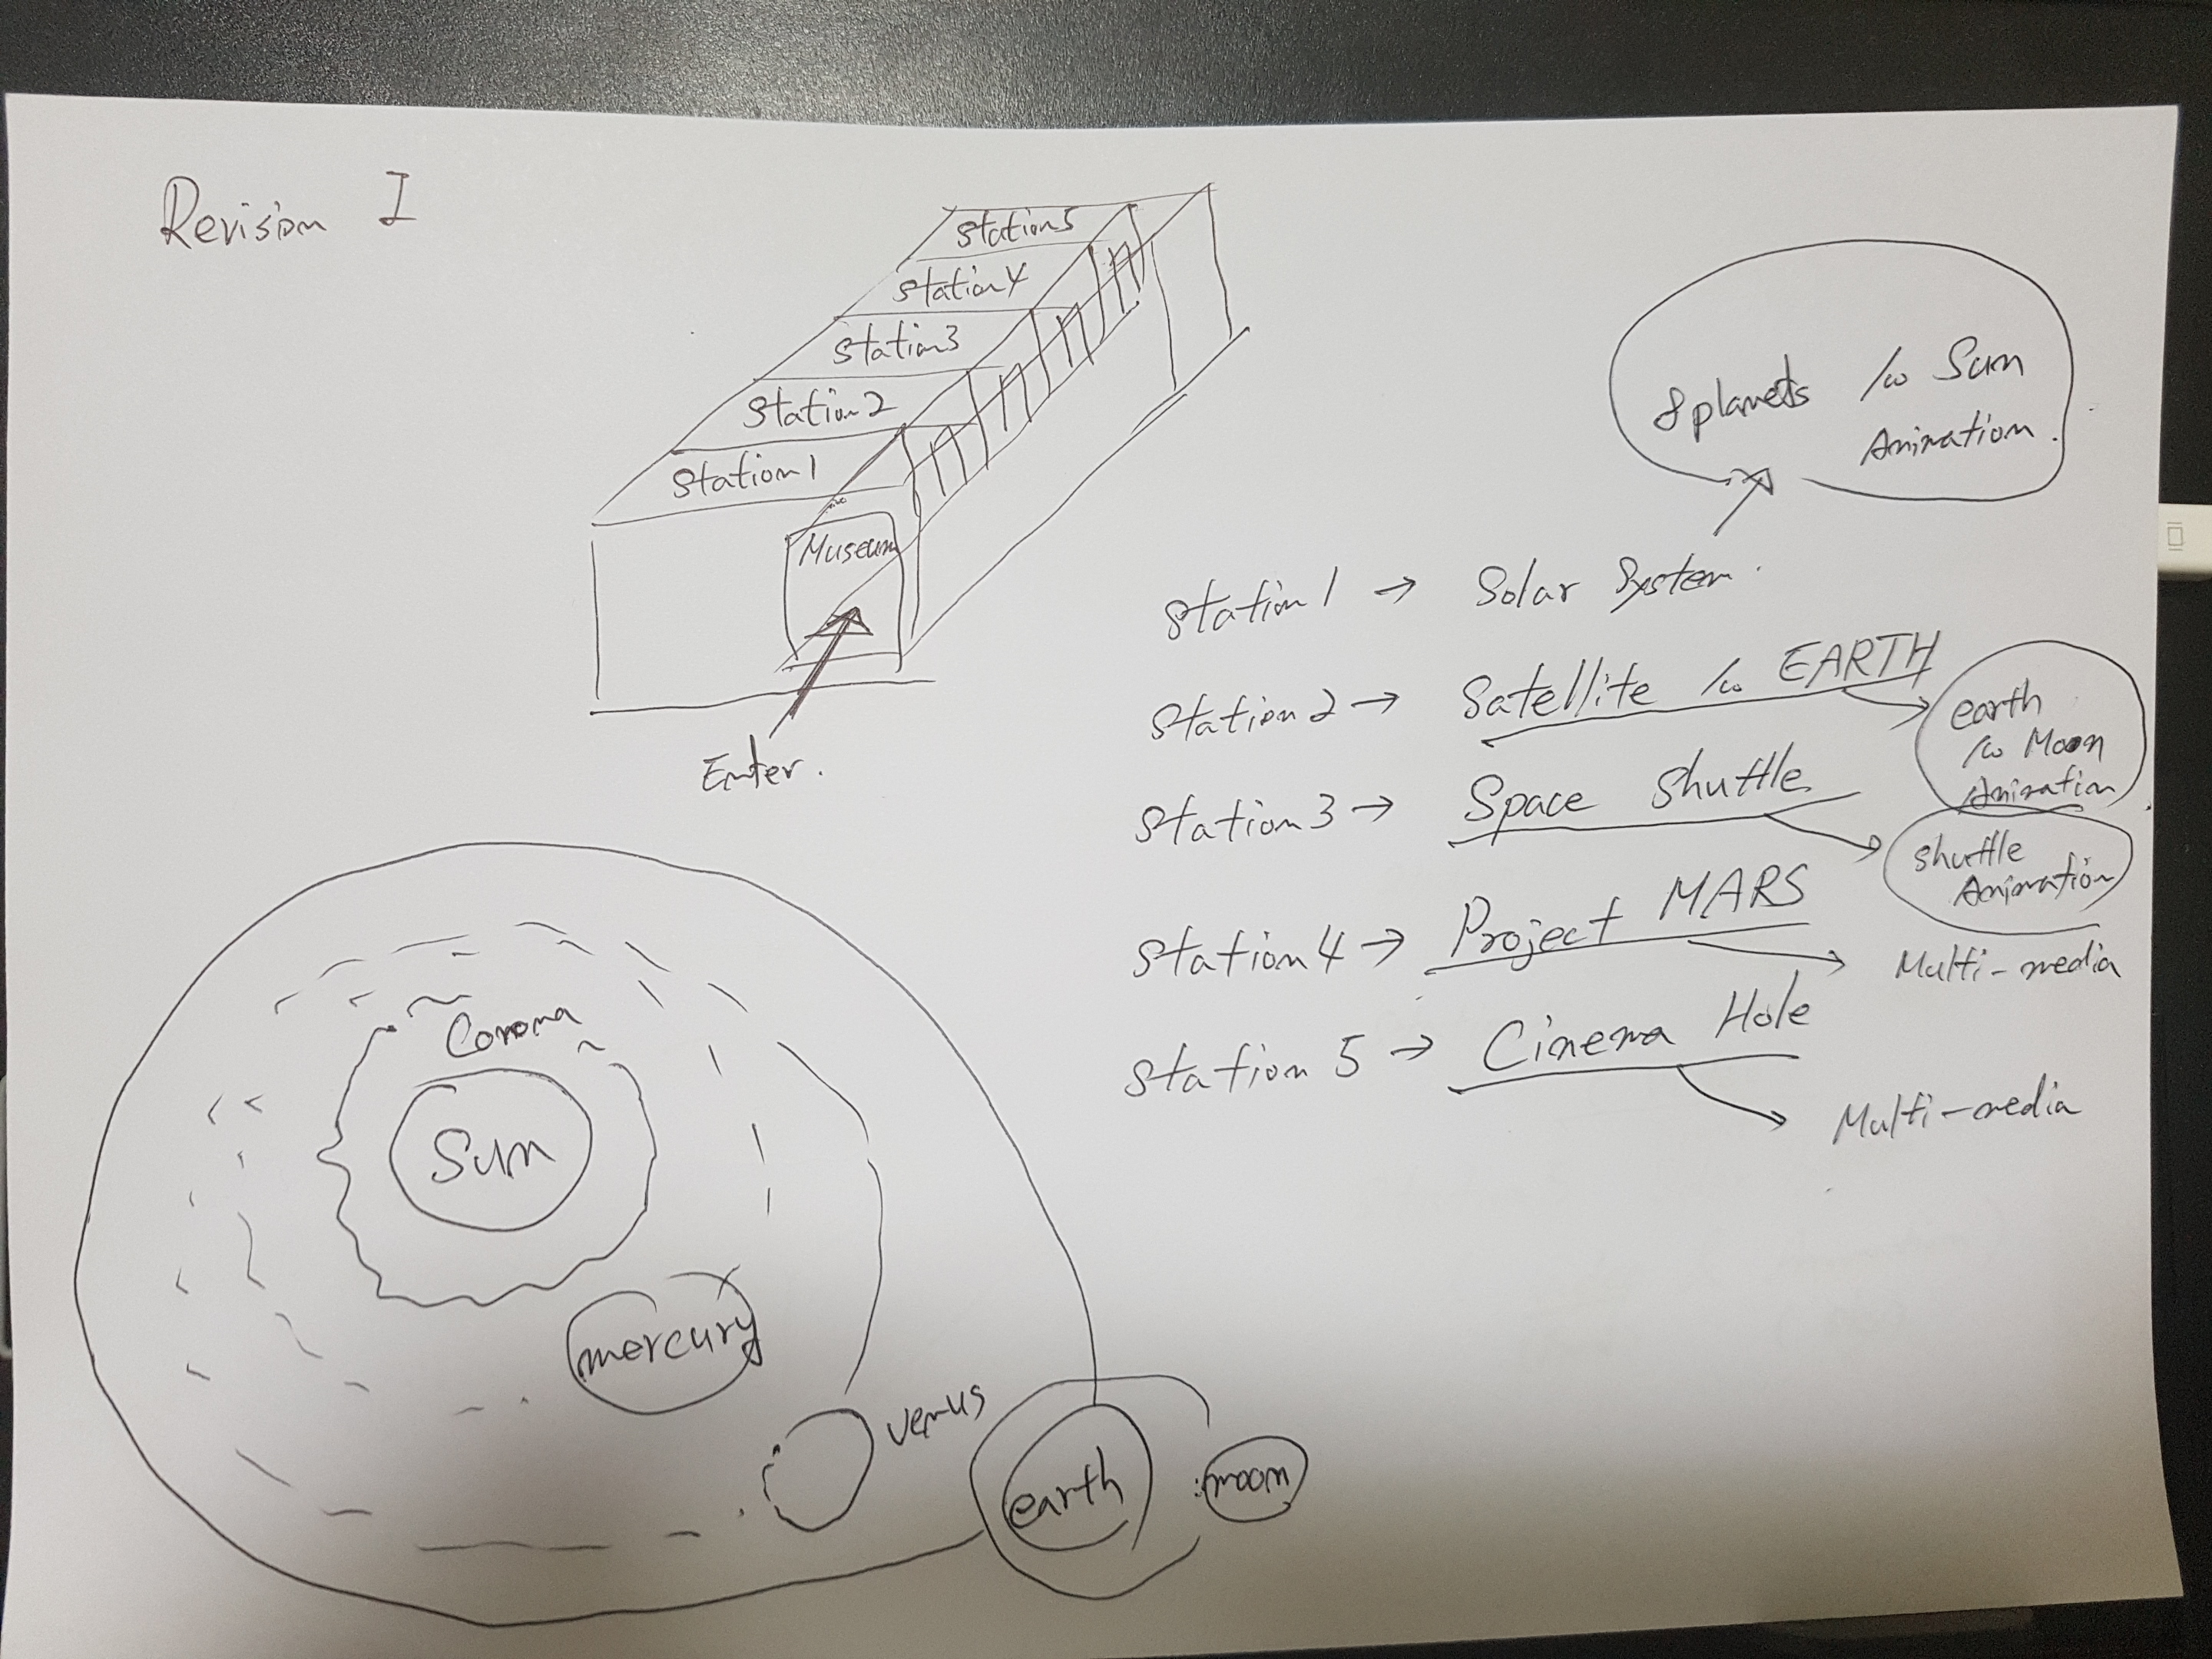 Revision I
Station5
Station4
Station3
Station2
Station1
Museum
Enter.
8planets /w Sun
Animation.
Station1 → Solar System.
Station2 → Satellite /w EARTH
earth
/w Moon
Animation
Station3 → Space Shuttle
shuttle
Animation
Station4 → Project MARS
Multi-media
Station 5 → Cinema Hole
Multi-media
Corona
Sun
mercury
venus
earth
moon